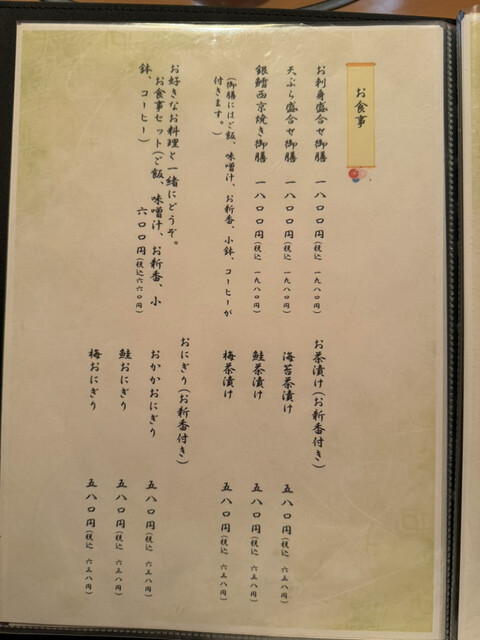 お食事
お刺身盛合せ御膳 一八〇〇円(税込 一九八〇円)
天ぷら盛合せ御膳 一八〇〇円(税込 一九八〇円)
銀鱈西京焼き御膳 一八〇〇円(税込 一九八〇円)
(御膳にはご飯、味噌汁、お新香、小鉢、コーヒーが
付きます。)
お好きなお料理と一緒にどうぞ。
お食事セット(ご飯、味噌汁、お新香、小
鉢、コーヒー) 六〇〇円(税込六六〇円)
お茶漬け(お新香付き)
海苔茶漬け 五八〇円(税込 六三八円)
鮭茶漬け 五八〇円(税込 六三八円)
梅茶漬け 五八〇円(税込 六三八円)
おにぎり(お新香付き)
おかかおにぎり 五八〇円(税込 六三八円)
鮭おにぎり 五八〇円(税込 六三八円)
梅おにぎり 五八〇円(税込 六三八円)